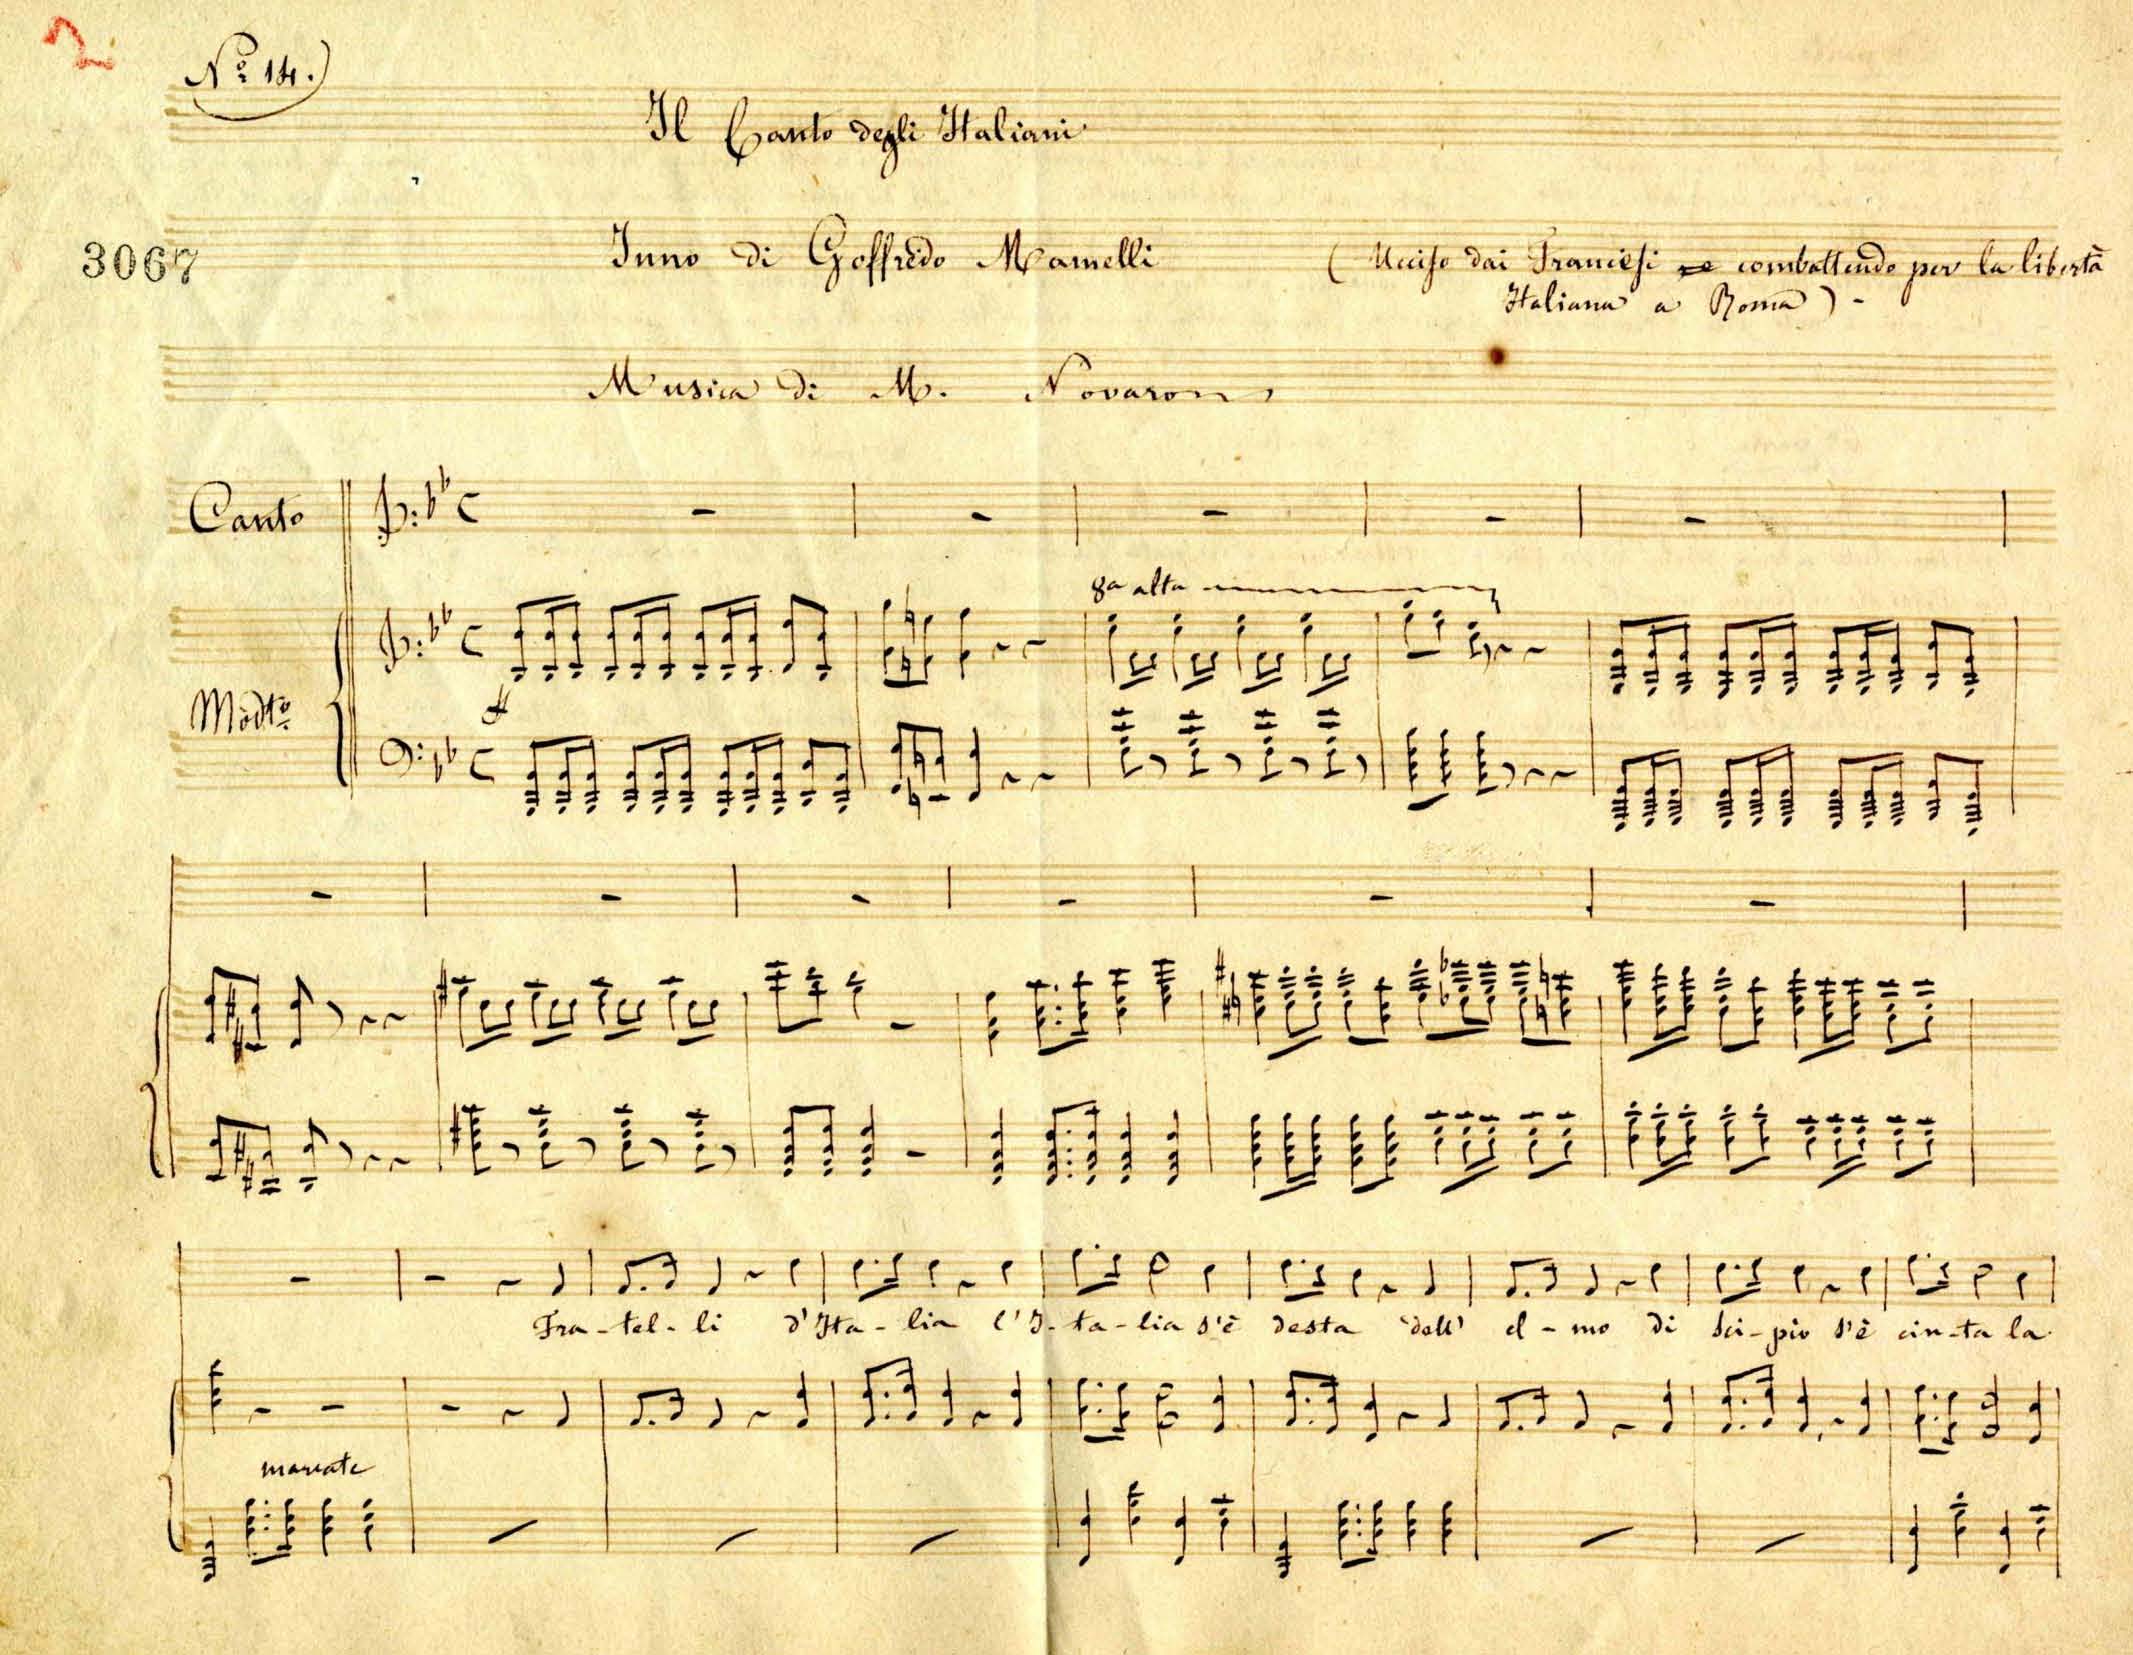 2
Nº 14.
Il Canto degli Italiani
3067
Inno di Goffredo Mamelli
(Ucciso dai Francesi combattendo per la libertà
Italiana a Roma) -
Musica di M. Novaro
Canto
8a alta
Modto
ff
marcate
Fra-tel-li d'Ita-lia l'I-ta-lia s'è desta dell' el-mo di Sci-pio s'è cin-ta la